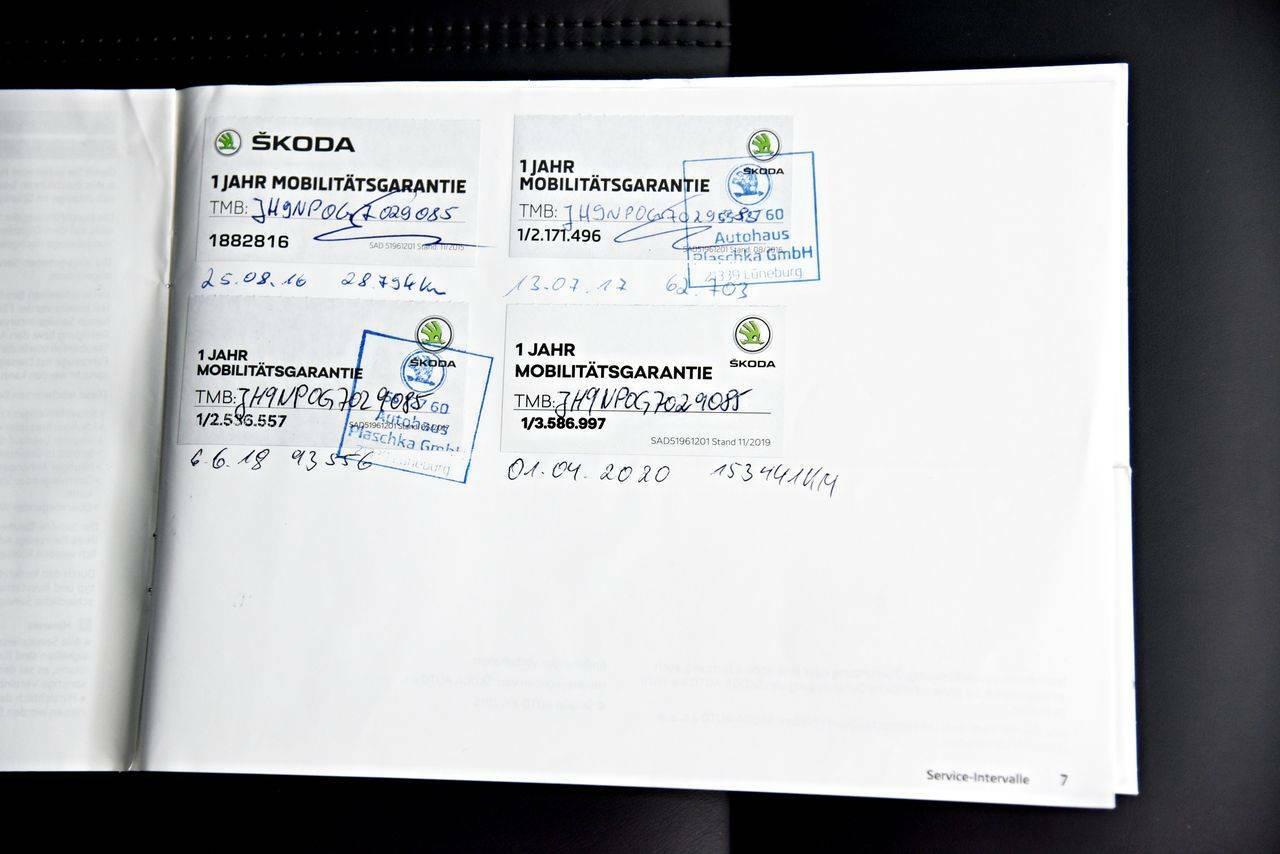 ŠKODA
1 JAHR MOBILITÄTSGARANTIE
TMB: JH9NP0G7029085
1882816
SAD 51961201 Stand: 11/2015
25.08.16 28.794km
ŠKODA
1 JAHR
MOBILITÄTSGARANTIE
TMB: JH9NP0G7029085
1/2.171.496
SAD51961201 Stand: 08/2016
60
Autohaus
Plaschka GmbH
21339 Lüneburg
13.07.17 62.703
ŠKODA
1 JAHR
MOBILITÄTSGARANTIE
TMB: JH9NP0G7029085
1/2.536.557
60
Autohaus
Plaschka GmbH
Lüneburg
6.6.18 93556
ŠKODA
1 JAHR
MOBILITÄTSGARANTIE
TMB: JH9NP0G7029085
1/3.586.997
SAD51961201 Stand 11/2019
01.04.2020 153441KM
Service-Intervalle 7